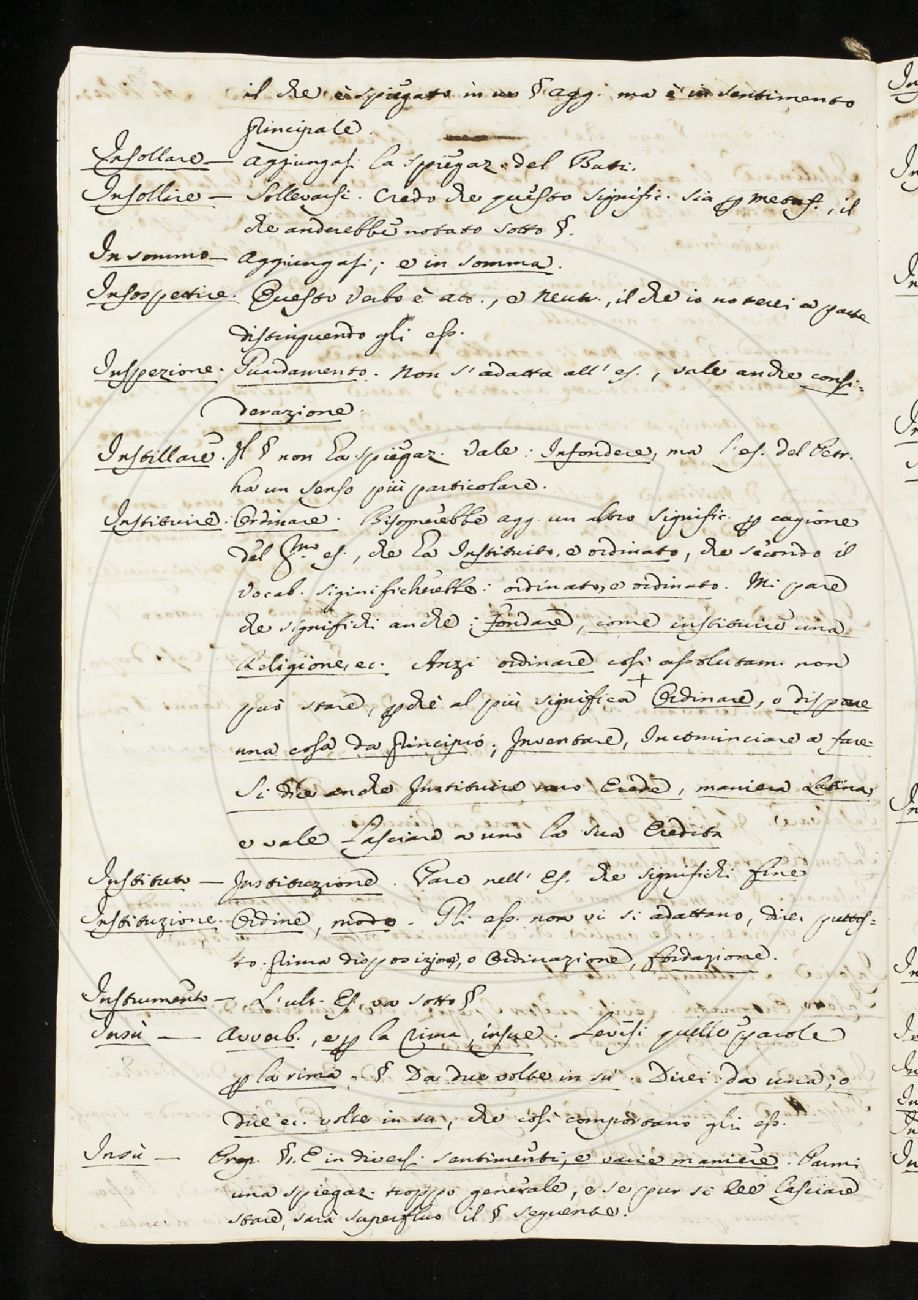 il che è spiegato in un § agg. ma è in sentimento
principale.
Insollare — Aggiungasi la spiegaz. del Buti.
Insollire — Sollevarsi. Credo che questo signific. sia p metaf., il
che anderebbe notato sotto §.
In sommo — Aggiungasi; e in somma.
Insospettire. Questo Verbo è att., e Neutr., il che io noterei a parte
distinguendo gli ess.
Inspezione. Guardamento. Non s'adatta all'es., vale anche consi-
derazione.
Instillare. Il § non ha spiegaz. Vale: Infondere, ma l'es. del Petr.
ha un senso più particolare.
Instituire. Ordinare. Bisognerebbe agg. un altro signific. p cagione
del Pmo es., che ha Instituito, e ordinato, che secondo il
Vocab. significherebbe: ordinato, e ordinato. Mi pare
che significhi anche: fondare, come instituire una
Religione, ec. Anzi ordinare così assolutam. non
può stare, pchè al più significa + Ordinare, o disporre
una cosa da principio; Inventare, Incominciare a fare
Si dice anche Instituire uno Erede, maniera Latina
e vale Lasciare a uno la sua Eredità
Instituto — Instituzione. Pare nell'Es. che significhi fine
Instituzione. Ordine, modo. Gli ess. non vi si adattano, direi piuttos-
to prima disposizione, o Ordinazione, fondazione.
Instrumento — L'ult. Es. va sotto §
Insù — Avverb., e p la rima, insue. Levisi quelle parole
p la rima. § Da due volte in sù. Direi da una, o
due ec. volte in su, che così comportano gli ess.
Insù — Prep. §. E in diversi sentimenti, e varie maniere. Parmi
una spiegaz. troppo generale, e se pur si dee lasciare
stare, sarà superfluo il § seguente.